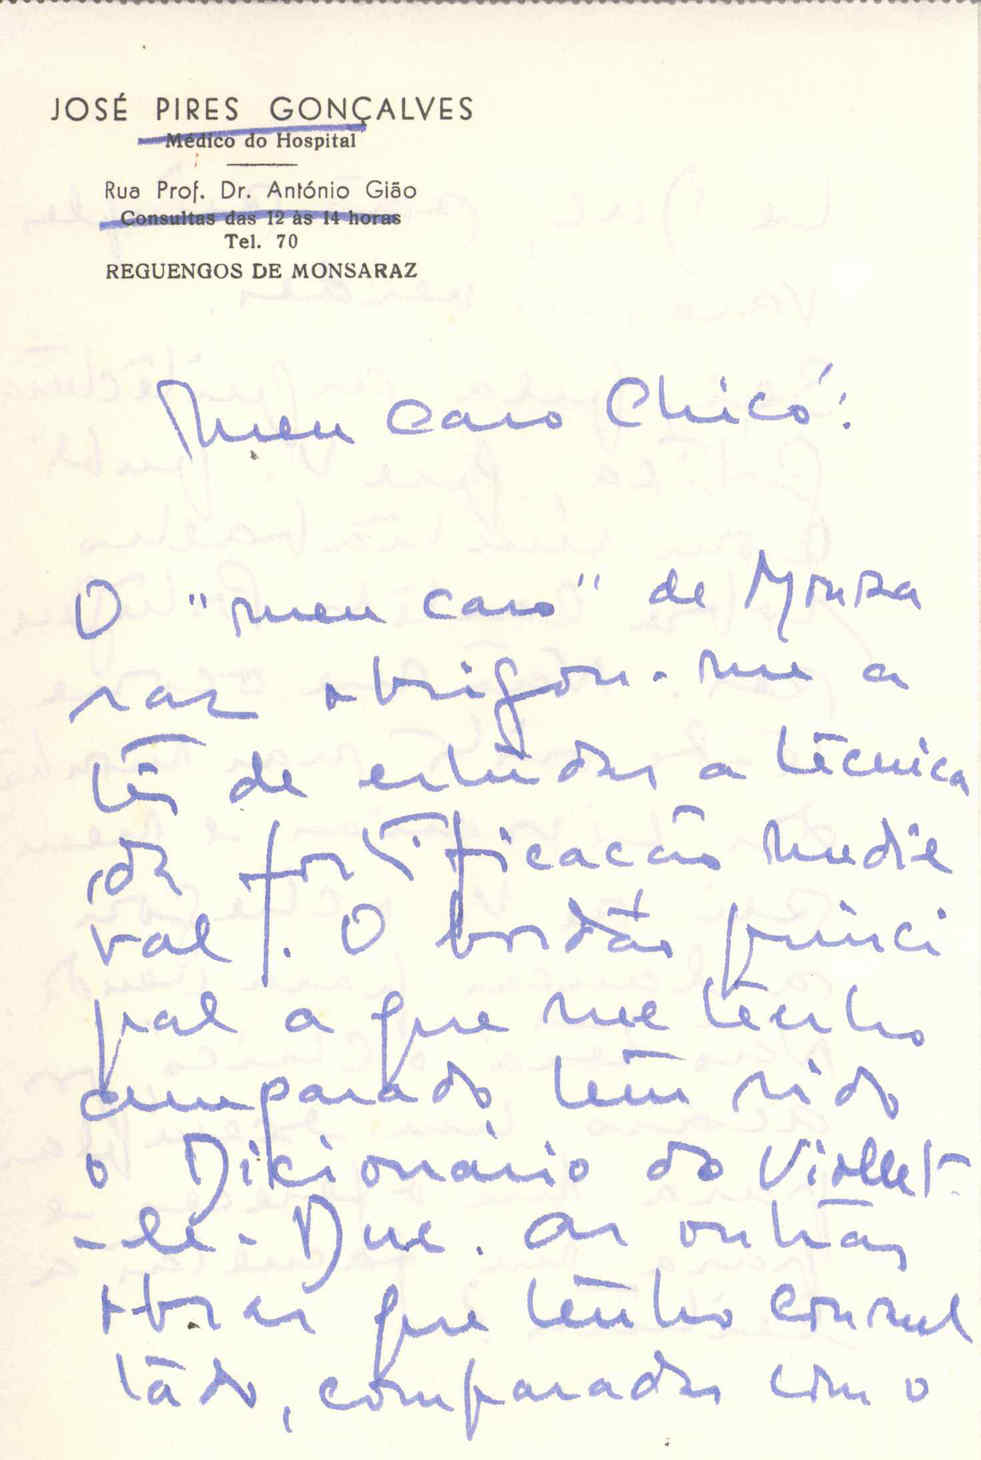 JOSÉ PIRES GONÇALVES
Médico do Hospital
Rua Prof. Dr. António Gião
Consultas das 12 às 14 horas
Tel. 70
REGUENGOS DE MONSARAZ
Meu caro Chicó:
O "meu caso" de Monsa
raz obrigou-me a
ter de estudar a técnica
da fortificação medie
val. O bordão princi
pal a que me tenho
amparado tem sido
o Dicionário do Viollet-
-le-Duc. As outras
obras que tenho consul
tado, comparadas com o